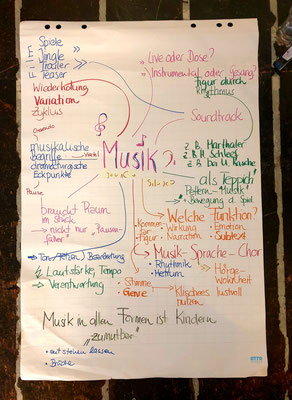 Spiele
Jingle
Trailer
Teaser
Wiederholung
Variation
Zyklus
Crescendo
musikalische
Begriffe
dramaturgische
Eckpunkte
Pause
braucht Raum
im Stück
→ nicht nur "Raum-
füller"
Lautstärke, Tempo
→ Verantwortung
Live oder Dose?
Instrumental oder Gesang?
Figur durch
Rhythmus
Soundtrack
z.B. Harthaler
z.B. H. Schleef
z.B. Da U. Rasche
als Teppich
Pattern-Musik
Bewegung d. Spiel
Musik
Welche Funktion?
Kommen-
tar
Figur
Wirkung
Narration
Emotion
Subtext
Musik-Sprache-Chor
Rhythmik
Metrum
Stimme
Genre
Hörge-
wohnheit
Klischees lustvoll
nutzen
Musik in allen Formen ist Kindern
"zumutbar"
entstehen lassen
Brüche